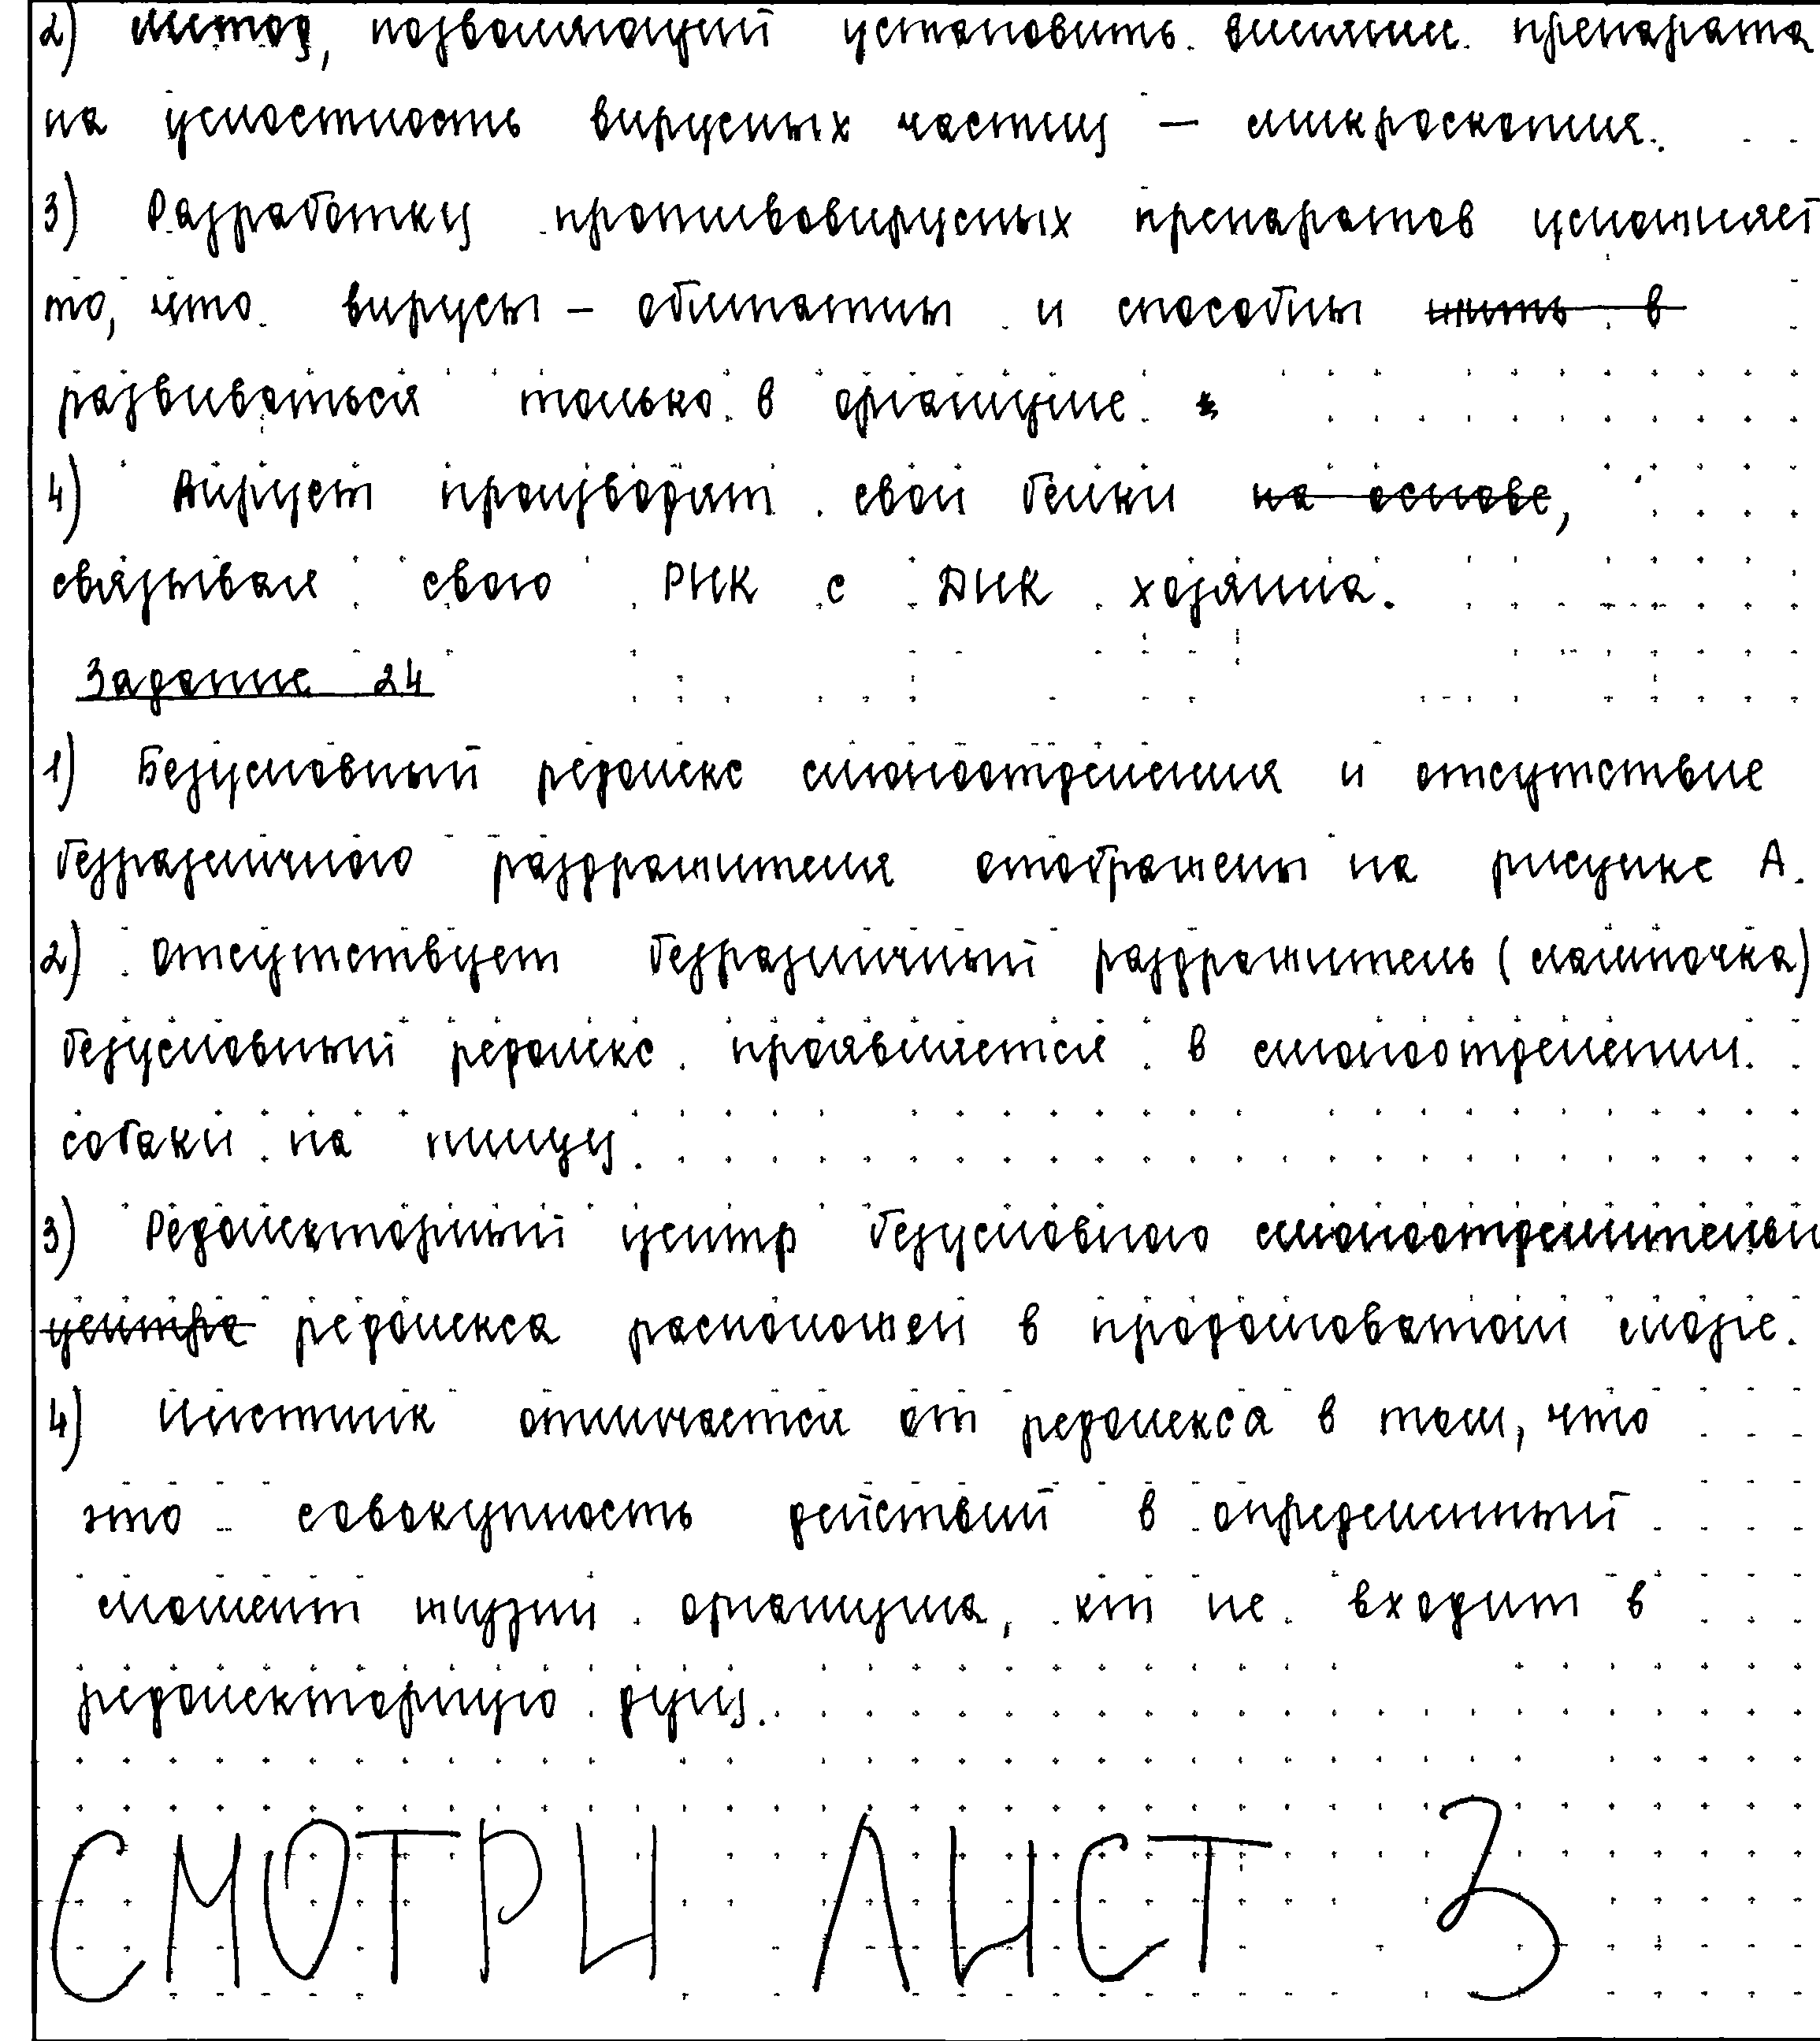 2) метод, позволяющий установить влияние препарата
на целостность вирусных частиц – микроскопия.
3) Разработку противовирусных препаратов усложняет
то, что вирусы – облигатны и способны жить в
развиваться только в организме.
4) Вирусы производят свои белки на основе,
связывая свою РНК с ДНК хозяина.
Задание 24
1) Безусловный рефлекс слюноотделения и отсутствие
безразличного раздражителя отображены на рисунке А.
2) Отсутствует безразличный раздражитель (лампочка)
безусловный рефлекс проявляется в слюноотделении
собаки на пищу.
3) Рефлекторный центр безусловного слюноотделительн
центра рефлекса расположен в продолговатом мозге.
4) Инстинк отличается от рефлекса в том, что
это совокупность действий в определенный
момент жизни организма, кт не входит в
рефлекторную дугу.
СМОТРИ ЛИСТ 3